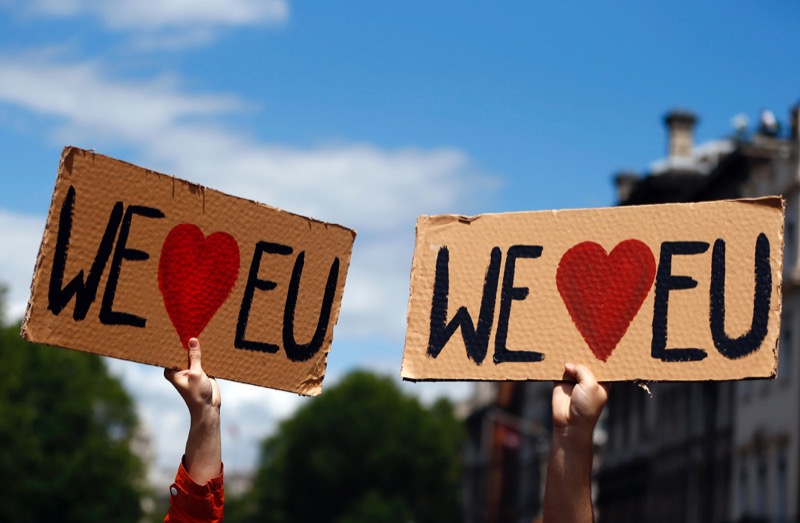 WE ❤ EU
WE ❤ EU